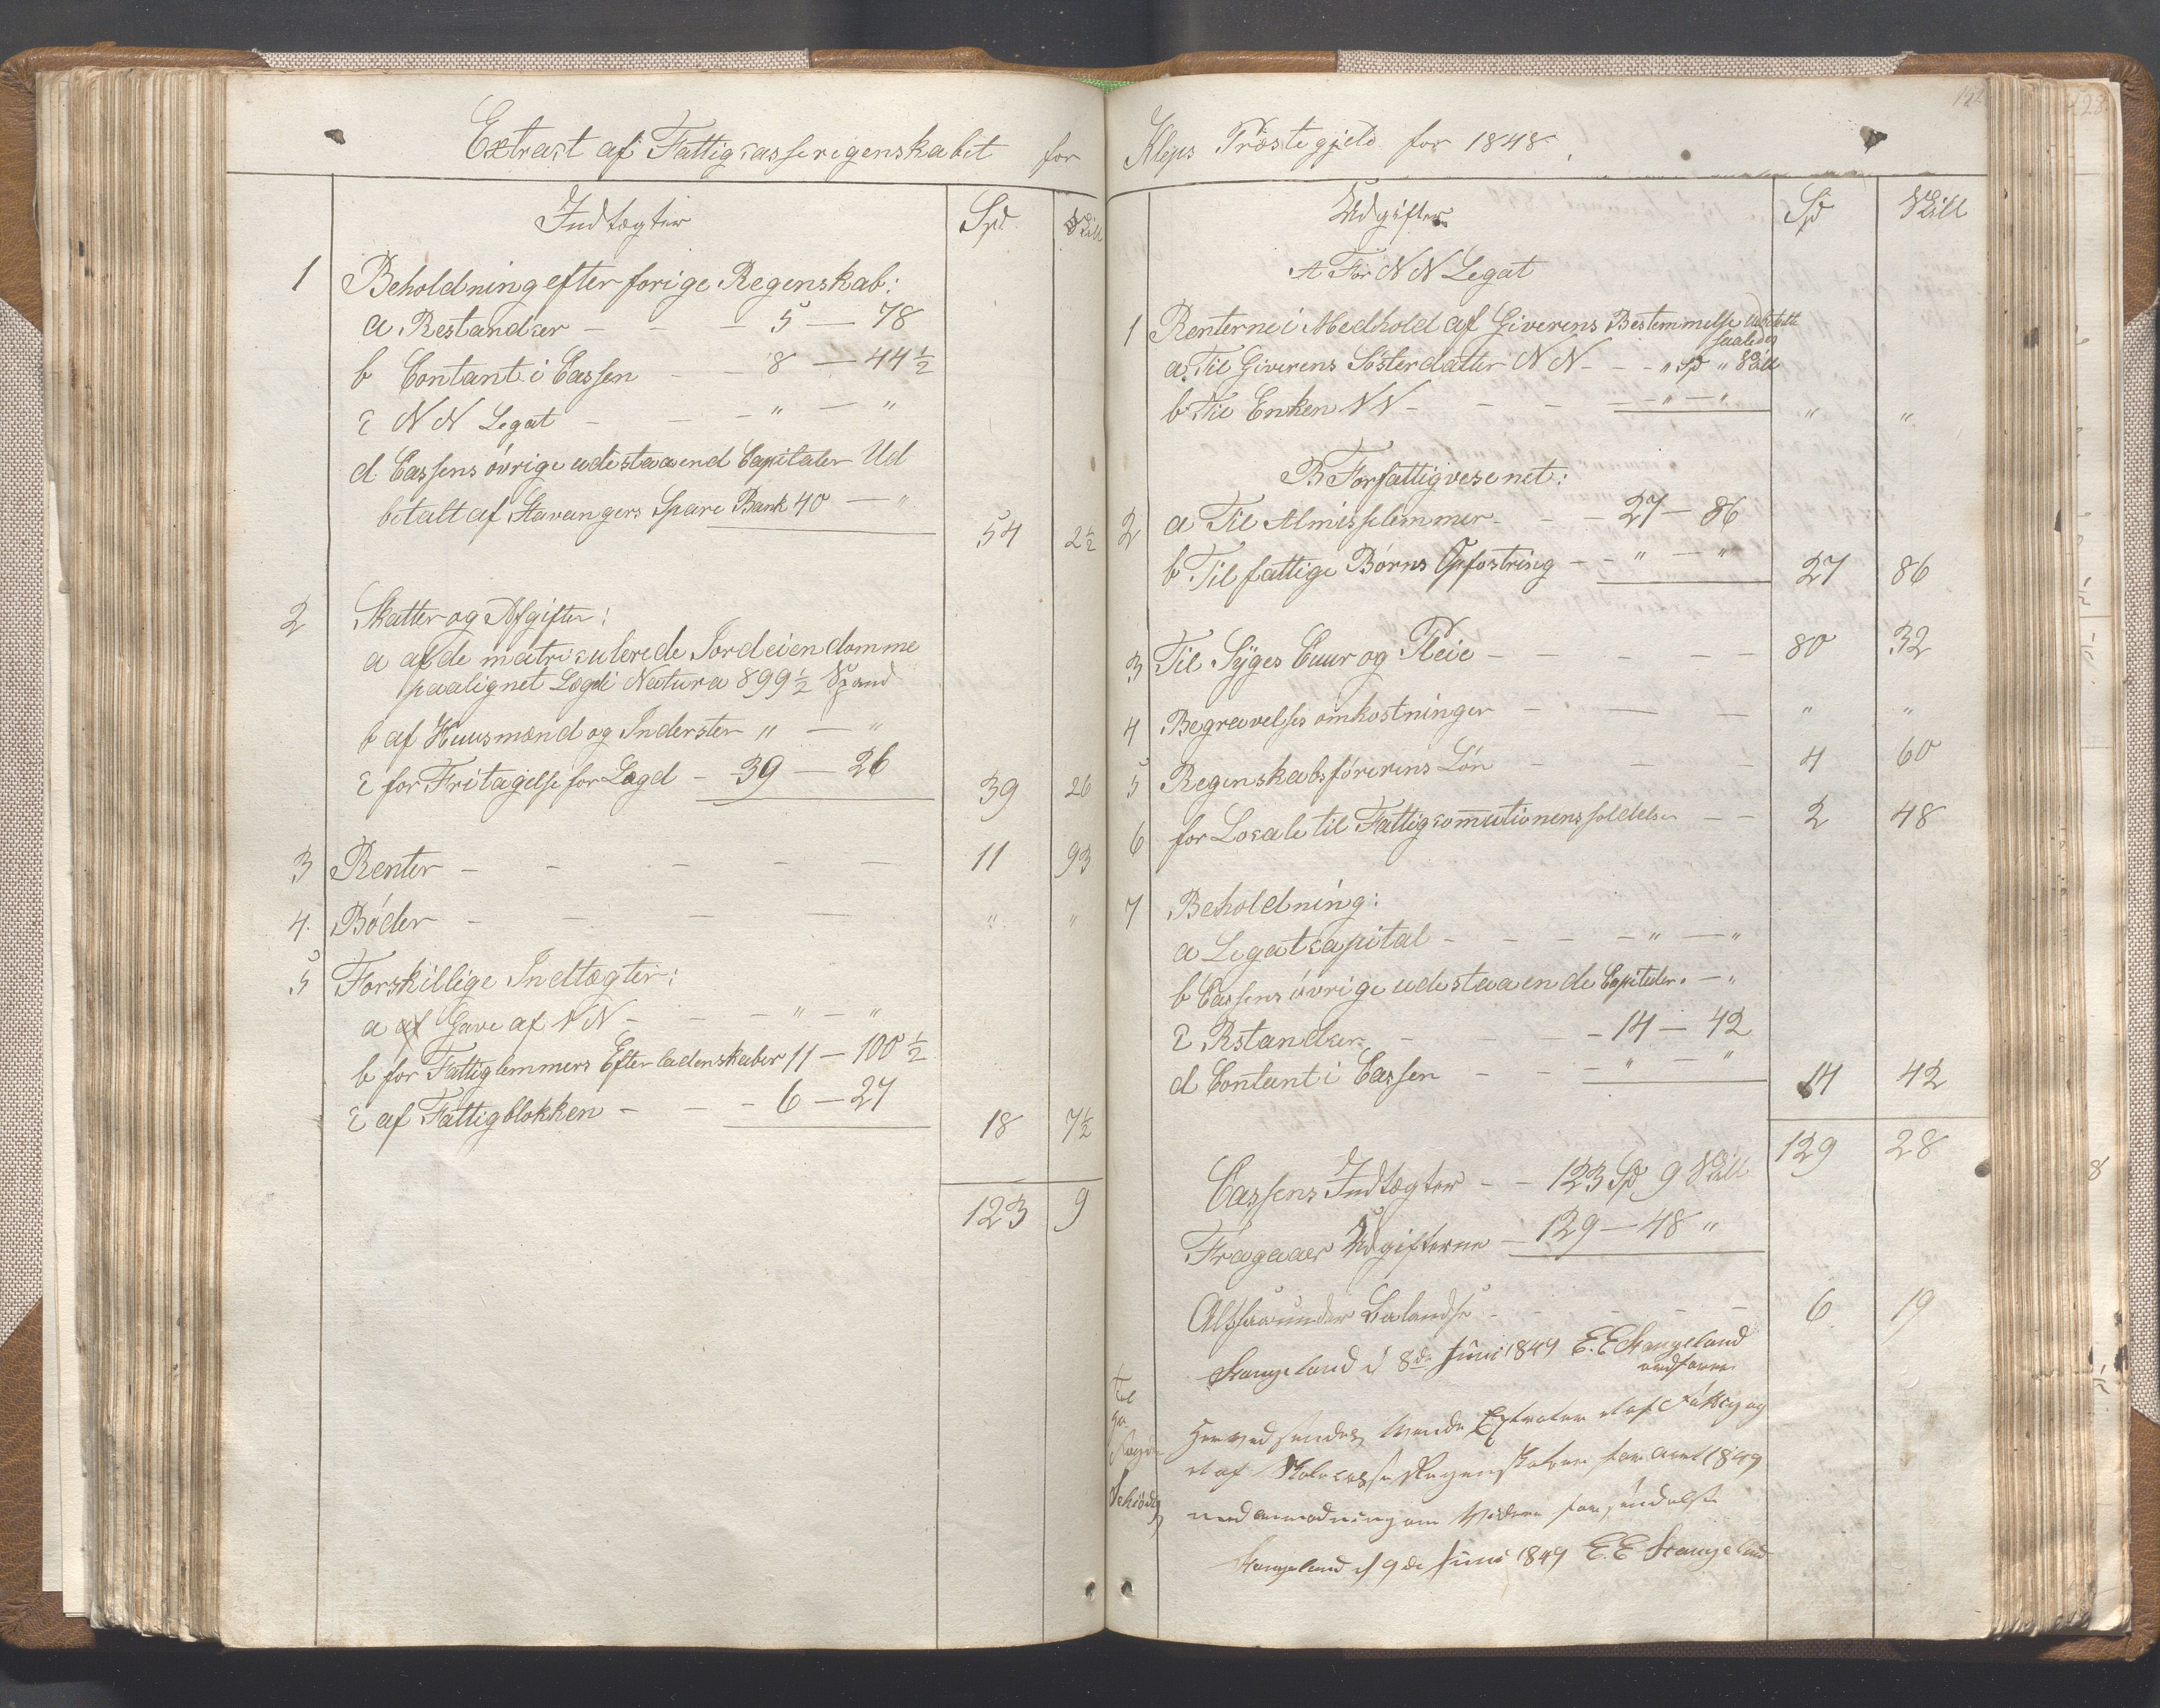 Extract af Fattigcasserigenskabet for
Indtægter Spd. Skill
1 Beholdning efter forige Regenskab:
a Restandser - - - 5 - 78
b Contant i Cassen - - 8 - 44 1/2
c N N Legat - - - " - "
d. Cassens övrige udestaaend Capitaler Ud
betalt af Stavangers Spare Bank 40 - " 54 2 1/2
2 Skatter og Afgifter:
a af de matriculerede Jordeiendomme
paalignet Lægd i Natura 899 1/2 Spand
b af Huusmænd og Inderster " - "
c for Fritagelse for Lægd - 39 - 26 39 26
3 Renter - - - - - 11 93
4. Böder - - - - " "
5 Forskillige Indtægter:
a af Gave af N N - - - " - "
b for Fattiglemmers Efterladenskaber 11 - 100 1/2
c af Fattigblokken - - - 6 - 27 18 7 1/2
123 9
Kleps Præstegjeld for 1848.
Udgifter Spd Skill
A For N N Legat
1 Renterne i Medhold af Giverens Bestemmelse udbetalt
saaledes
a. Til Giverens Søsterdatter N N - - - " Spd " Skill
b. Til Enken N N - - - - " - " " "
B For fattigvesenet:
2 a Til Almisselemmer - - - 27 - 86
b Til fattige Børns Opfostring - - " - " 27 86
3 Til Syges Cuur og Pleie - - - - - 80 32
4 Begravelses omkostninger - - - - " "
5 Regenskabsförerens Lön - - - 4 60
6 for Locale til Fattigcommitionens - - 2 48
7 Beholdning:
a Legatcapital - - - - " - "
b Cassens övrige udestaaende Capitaler. - "
c Rstandser - - - - 14 - 42
d Contant i Cassen - - - " - " 14 42
129 28
Cassens Indtægter - - 123 Spd 9 Skill
Fragaaer Udgifterne - 129 - 48 "
Altsaa under Balandse - - - - 6 19
Stangeland d 8de Juni 1849 E. E Stangeland
ordförer
Til
Schiötz
Herved sendes tvende Extrater et af Fattig og
et af Skolecasse Regenskaber for aaret 1849
med anmodning om videre forsendelse
Stangeland d 9de Juni 1849 E. E Stangeland